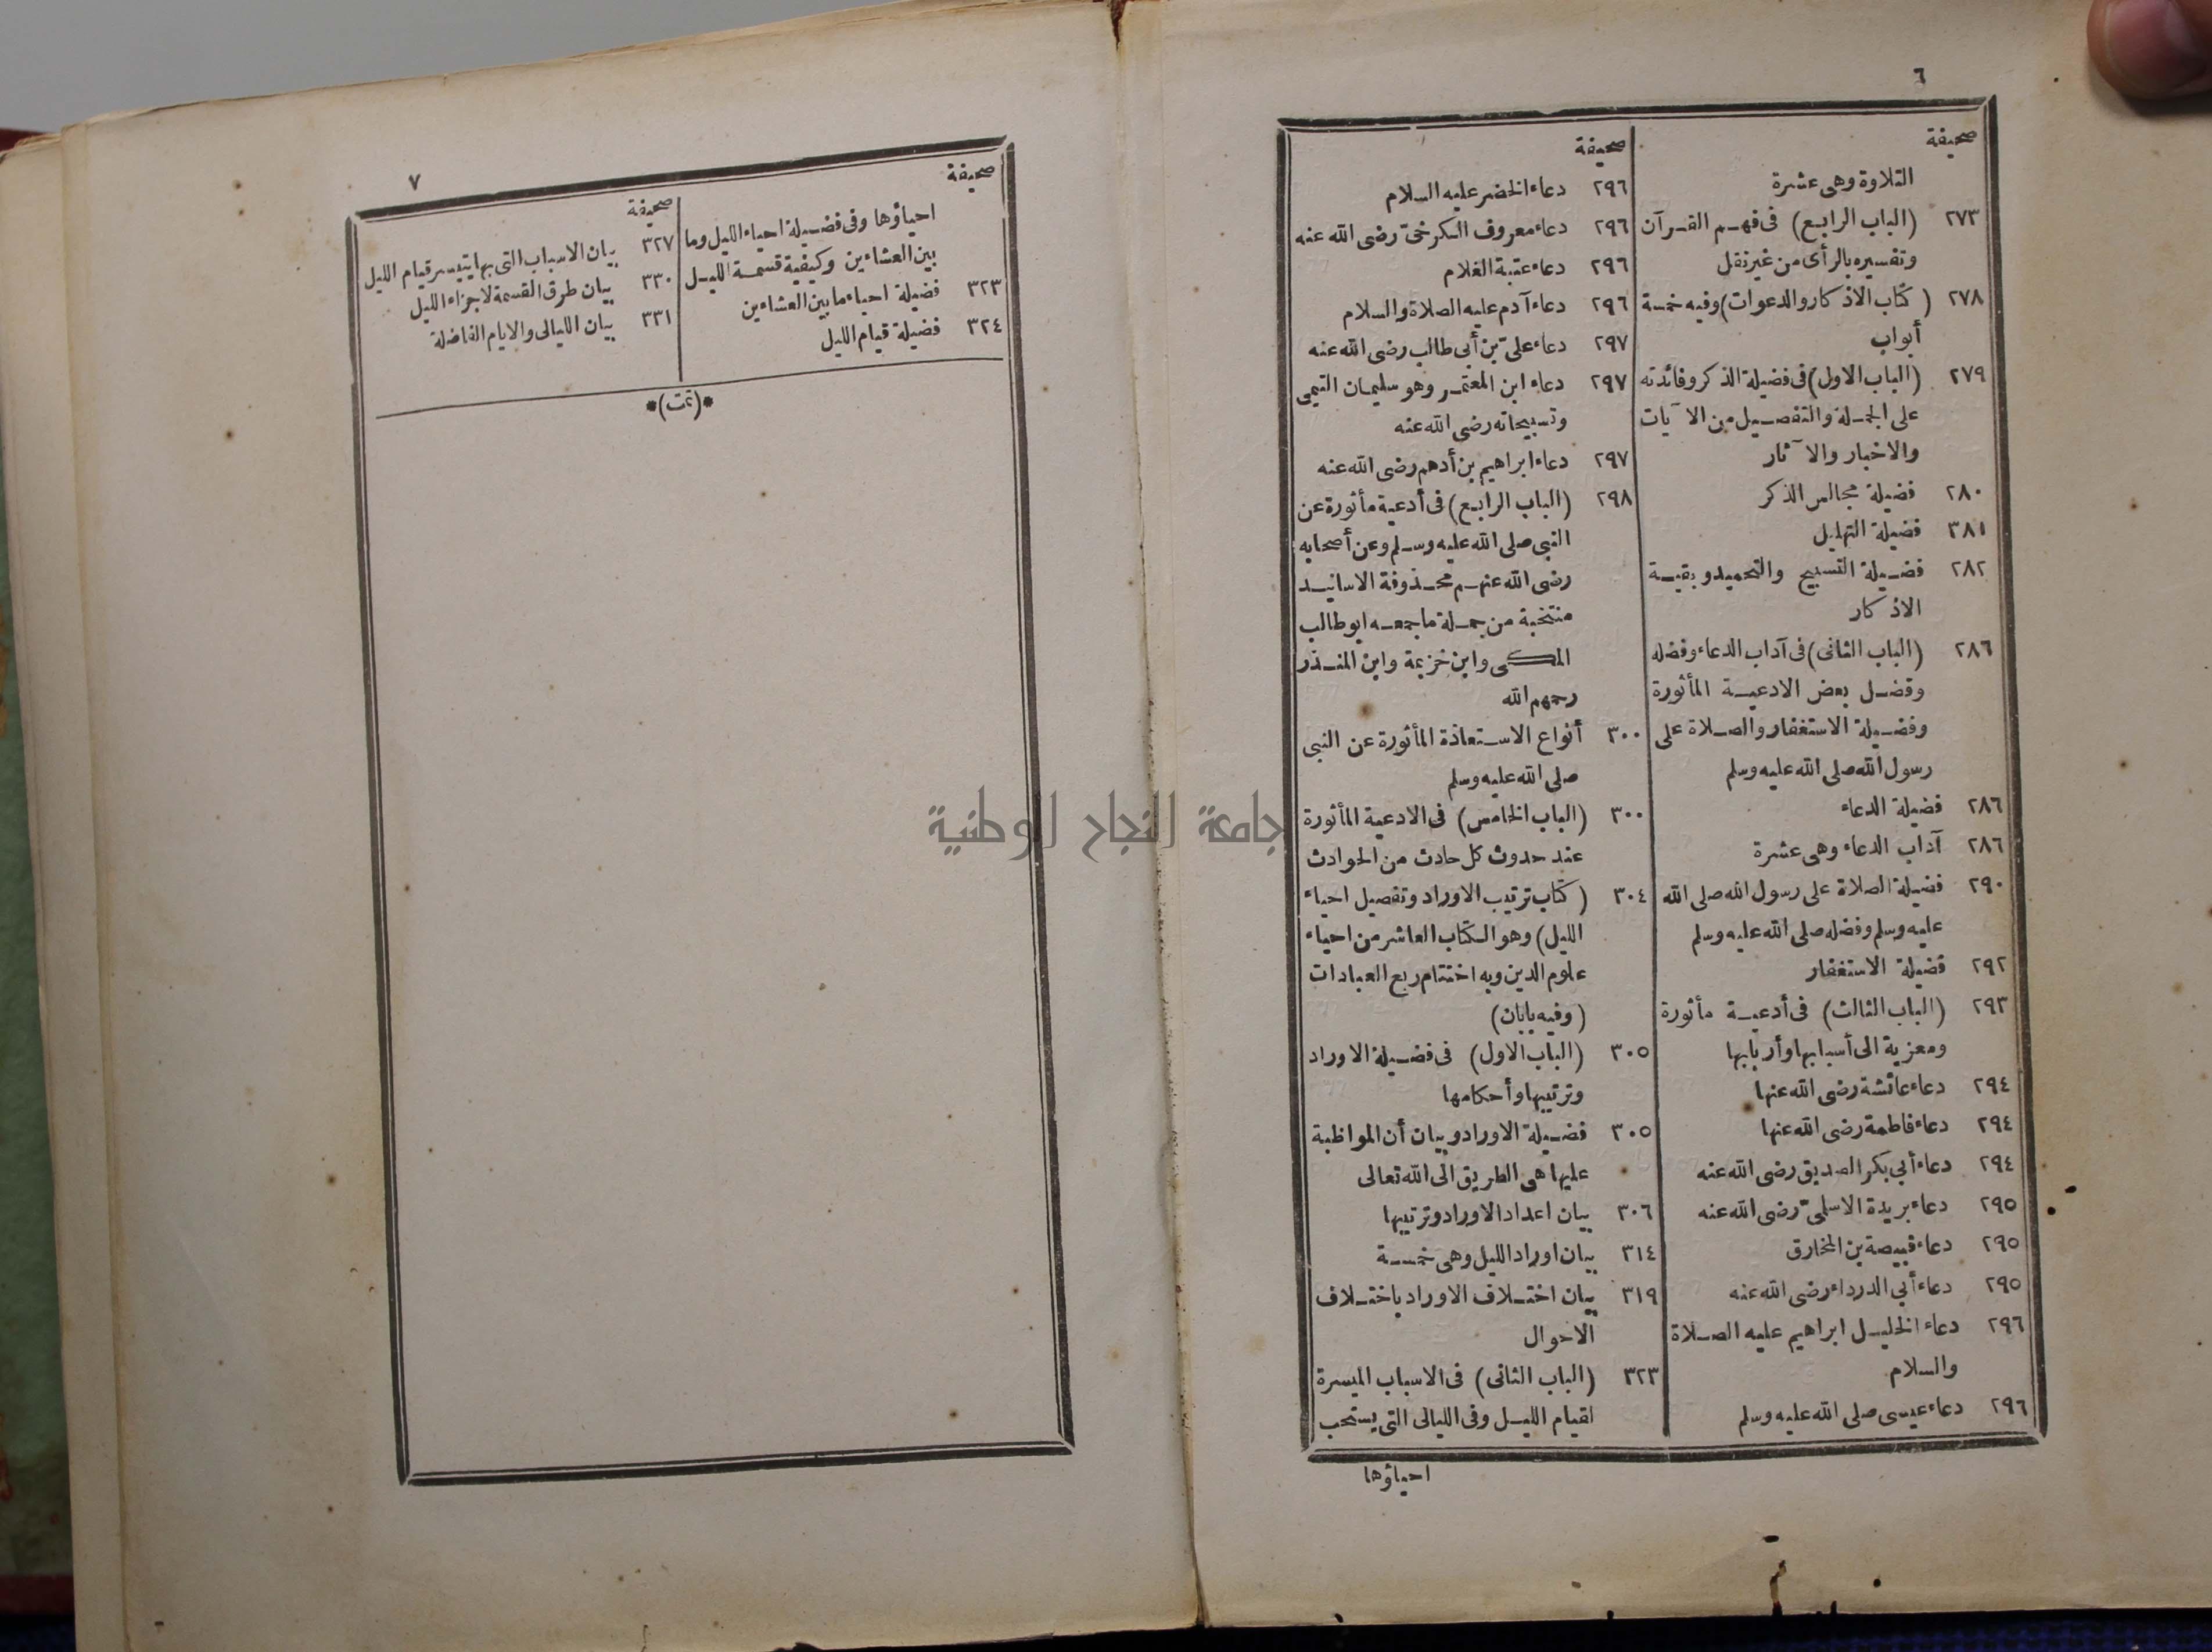 ٦
صحيفة
التلاوة وهى عشرة
٢٧٣ (الباب الرابع) فى فهم القرآن
وتفسيره بالرأى من غير نقل
٢٧٨ (كتاب الاذكار والدعوات) وفيه خمسة
أبواب
٢٧٩ (الباب الاول) فى فضيلة الذكر وفائدته
على الجملة والتفصيل من الآيات
والاخبار والآثار
٢٨٠ فضيلة مجالس الذكر
٣٨١ فضيلة التهليل
٢٨٢ فضيلة التسبيح والتحميد وبقية
الاذكار
٢٨٦ (الباب الثانى) فى آداب الدعاء وفضله
وفضل بعض الادعية المأثورة
وفضيلة الاستغفار والصلاة على
رسول الله صلى الله عليه وسلم
٢٨٦ فضيلة الدعاء
٢٨٦ آداب الدعاء وهى عشرة
٢٩٠ فضيلة الصلاة على رسول الله صلى الله
عليه وسلم وفضله صلى الله عليه وسلم
٢٩٢ فضيلة الاستغفار
٢٩٣ (الباب الثالث) فى أدعية مأثورة
ومعزية الى أسبابها وأربابها
٢٩٤ دعاء عائشة رضى الله عنها
٢٩٤ دعاء فاطمة رضى الله عنها
٢٩٤ دعاء أبى بكر الصديق رضى الله عنه
٢٩٥ دعاء بريدة الاسلمىّ رضى الله عنه
٢٩٥ دعاء قبيصة بن المخارق
٢٩٥ دعاء أبى الدرداء رضى الله عنه
٢٩٦ دعاء الخليل ابراهيم عليه الصلاة
والسلام
٢٩٦ دعاء عيسى صلى الله عليه وسلم
صحيفة
٢٩٦ دعاء الخضر عليه السلام
٢٩٦ دعاء معروف الكرخىّ رضى الله عنه
٢٩٦ دعاء عتبة الغلام
٢٩٦ دعاء آدم عليه الصلاة والسلام
٢٩٧ دعاء علىّ بن أبى طالب رضى الله عنه
٢٩٧ دعاء ابن المعتمر وهو سليمان التيمى
وتسبيحاته رضى الله عنه
٢٩٧ دعاء ابراهيم بن أدهم رضى الله عنه
٢٩٨ (الباب الرابع) فى أدعية مأثورة عن
النبى صلى الله عليه وسلم وعن أصحابه
رضى الله عنهم محذوفة الاسانيد
منتخبة من جملة ما جمعه ابو طالب
المكى وابن خزيمة وابن المنذر
رحمهم الله
٣٠٠ أنواع الاستعاذة المأثورة عن النبى
صلى الله عليه وسلم
٣٠٠ (الباب الخامس) فى الادعية المأثورة
عند حدوث كل حادث من الحوادث
٣٠٤ (كتاب ترتيب الاوراد وتفصيل احياء
الليل) وهو الكتاب العاشر من احياء
علوم الدين وبه اختتام ربع العبادات
(وفيه بابان)
٣٠٥ (الباب الاول) فى فضيلة الاوراد
وترتيبها وأحكامها
٣٠٥ فضيلة الاوراد وبيان أن المواظبة
عليها هى الطريق الى الله تعالى
٣٠٦ بيان اعداد الاوراد وترتيبها
٣١٤ بيان اوراد الليل وهى خمسة
٣١٩ بيان اختلاف الاوراد باختلاف
الاحوال
٣٢٣ (الباب الثانى) فى الاسباب الميسرة
لقيام الليل وفى الليالى التى يستحب
احياؤها
٧
صحيفة
احياؤها وفى فضيلة احياء الليل وما
بين العشاءين وكيفية قسمة الليل
٣٢٣ فضيلة احياء ما بين العشاءين
٣٢٤ فضيلة قيام الليل
صحيفة
٣٢٧ بيان الاسباب التى بها يتيسر قيام الليل
٣٣٠ بيان طرق القسمة لاجزاء الليل
٣٣١ بيان الليالى والايام الفاضلة
*(تمت)*
جامعة النجاح الوطنية